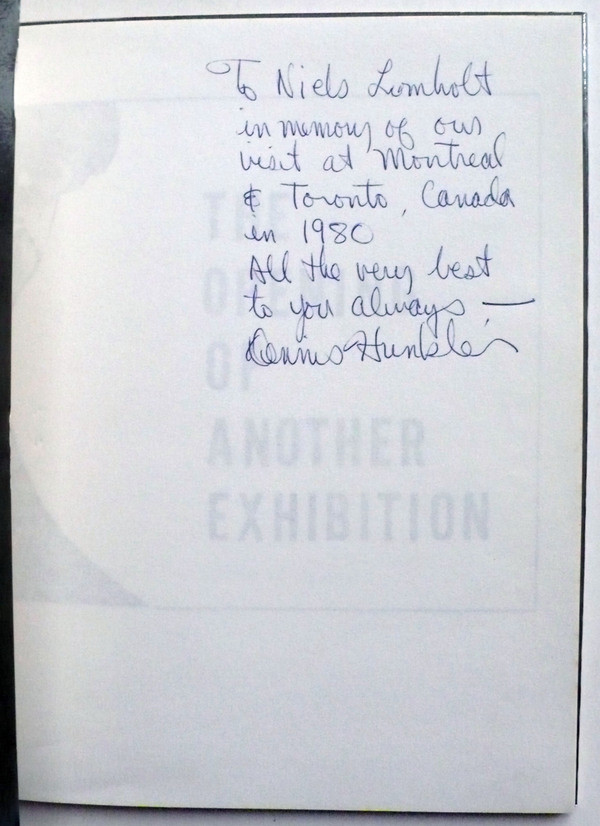 To Niels Lomholt
in memory of our
visit at Montreal
& Toronto, Canada
in 1980
All the very best
to you always —
Dennis Hunkler
THE
OPENING
OF
ANOTHER
EXHIBITION